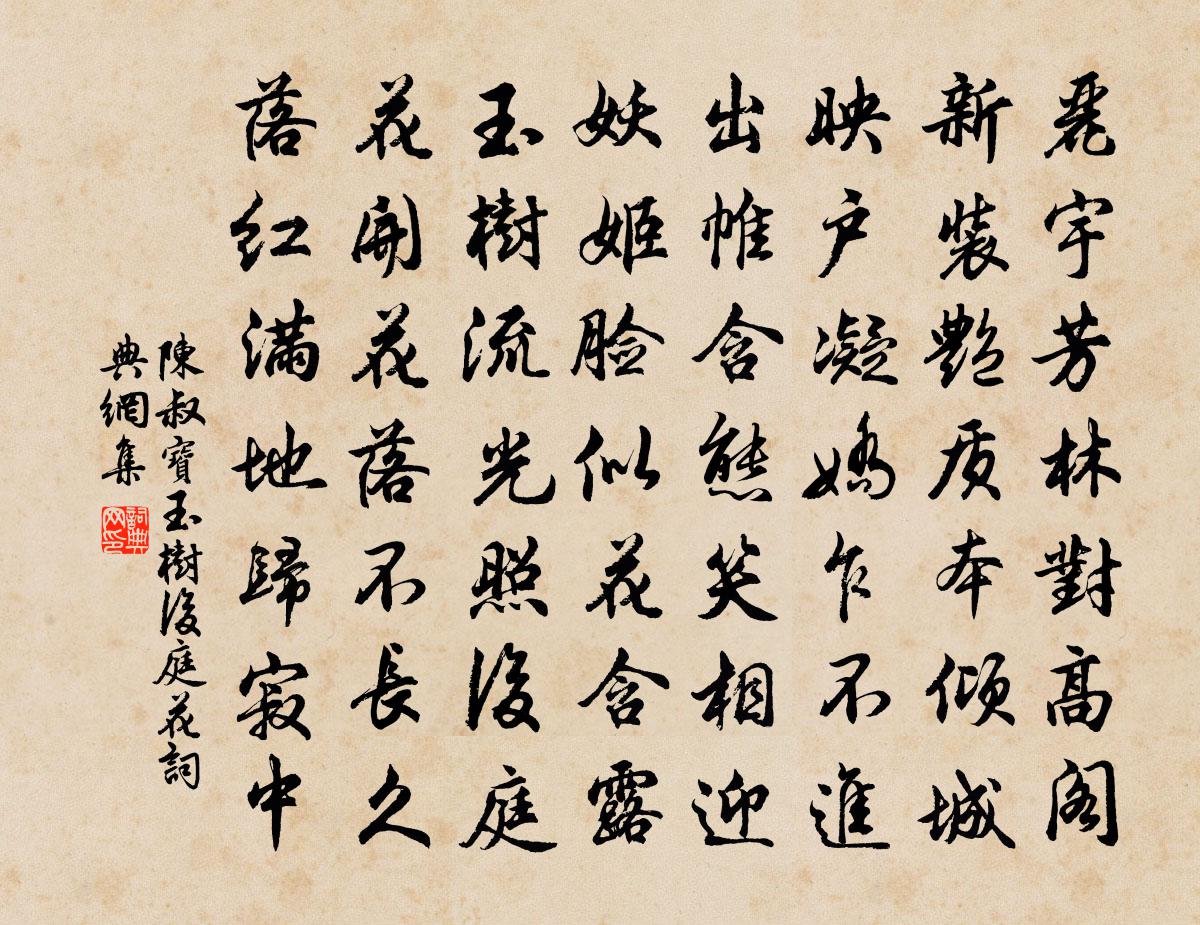 麗宇芳林對高閣
新裝艷质本倾城
映户凝嬌乍不進
出帷含態笑相迎
妖姬脸似花含露
玉樹流光照後庭
花開花落不長久
落红满地歸寂中
陳叔寶玉樹後庭花詞
典網集
詞典网印